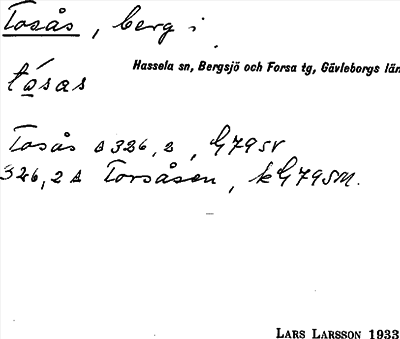 Tosås, berg i
Hassela sn, Bergsjö och Forsa tg, Gävleborgs län
tósas
Tosås Δ 326,2, G79SV
326,2 Δ Torsåsen, kG79SM.
LARS LARSSON 1933